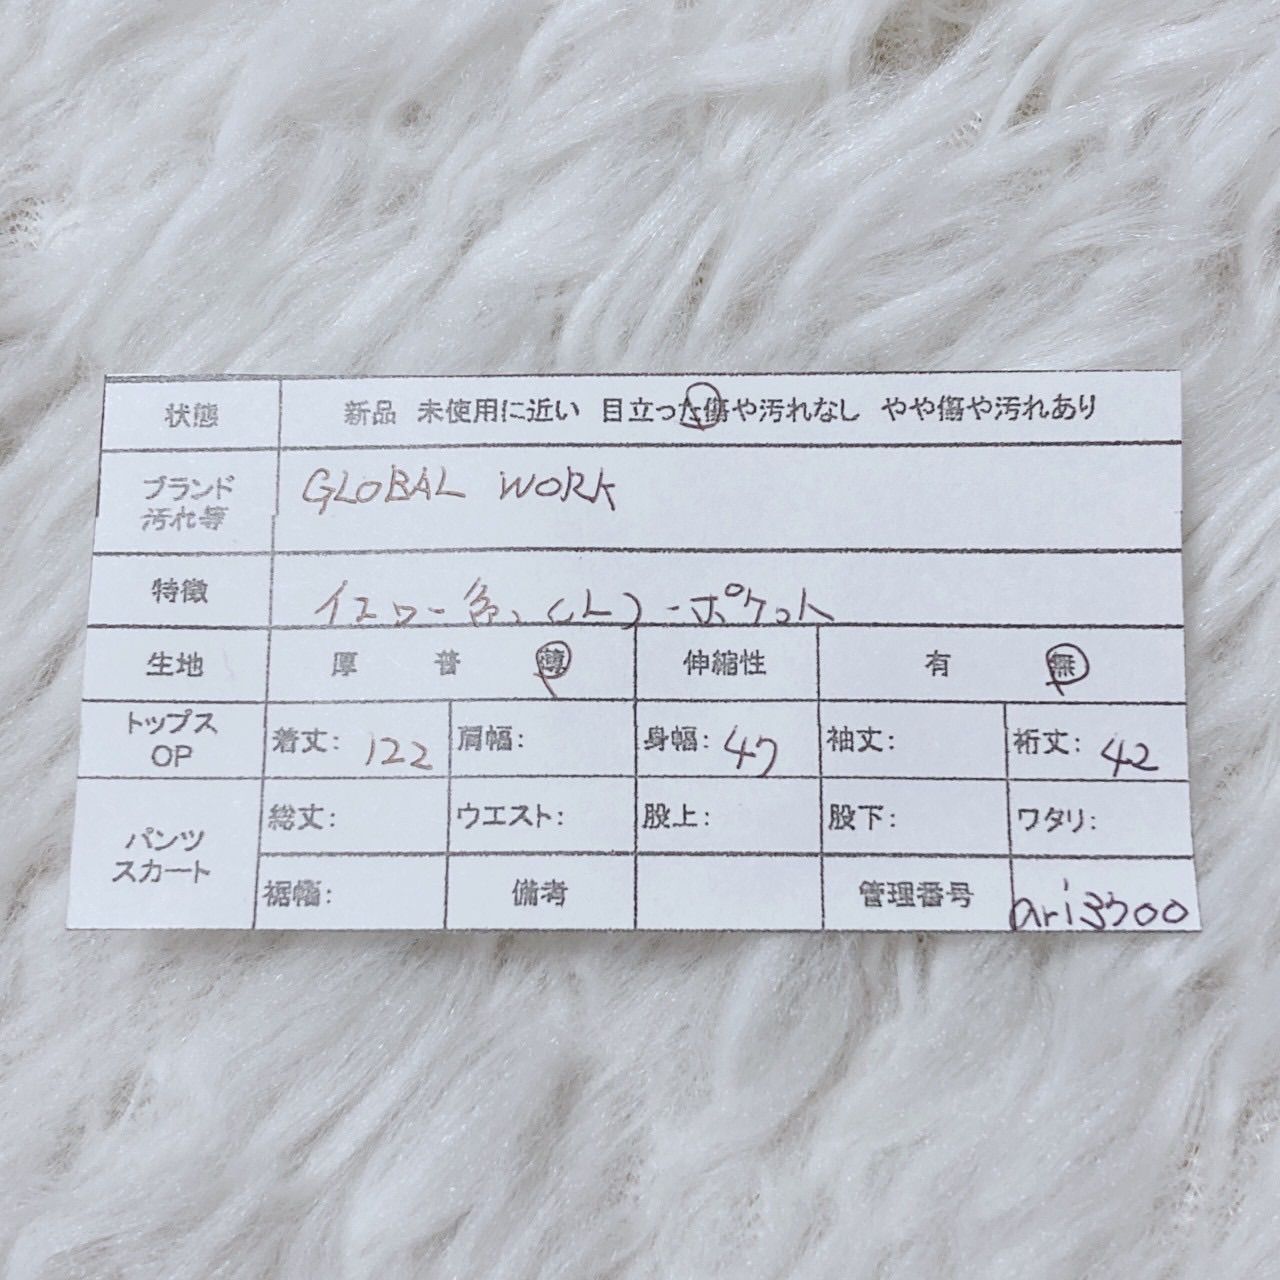 状態 新品 未使用に近い 目立った傷や汚れなし やや傷や汚れあり
ブランド
汚れ等
GLOBAL WORK
特徴 イエロー色、(L)-ポケット
生地 厚 普 薄 伸縮性 有 無
トップス
OP
着丈: 122 肩幅: 身幅: 47 袖丈: 裄丈: 42
パンツ
スカート
総丈: ウエスト: 股上: 股下: ワタリ:
裾幅: 備考 管理番号 ari3700